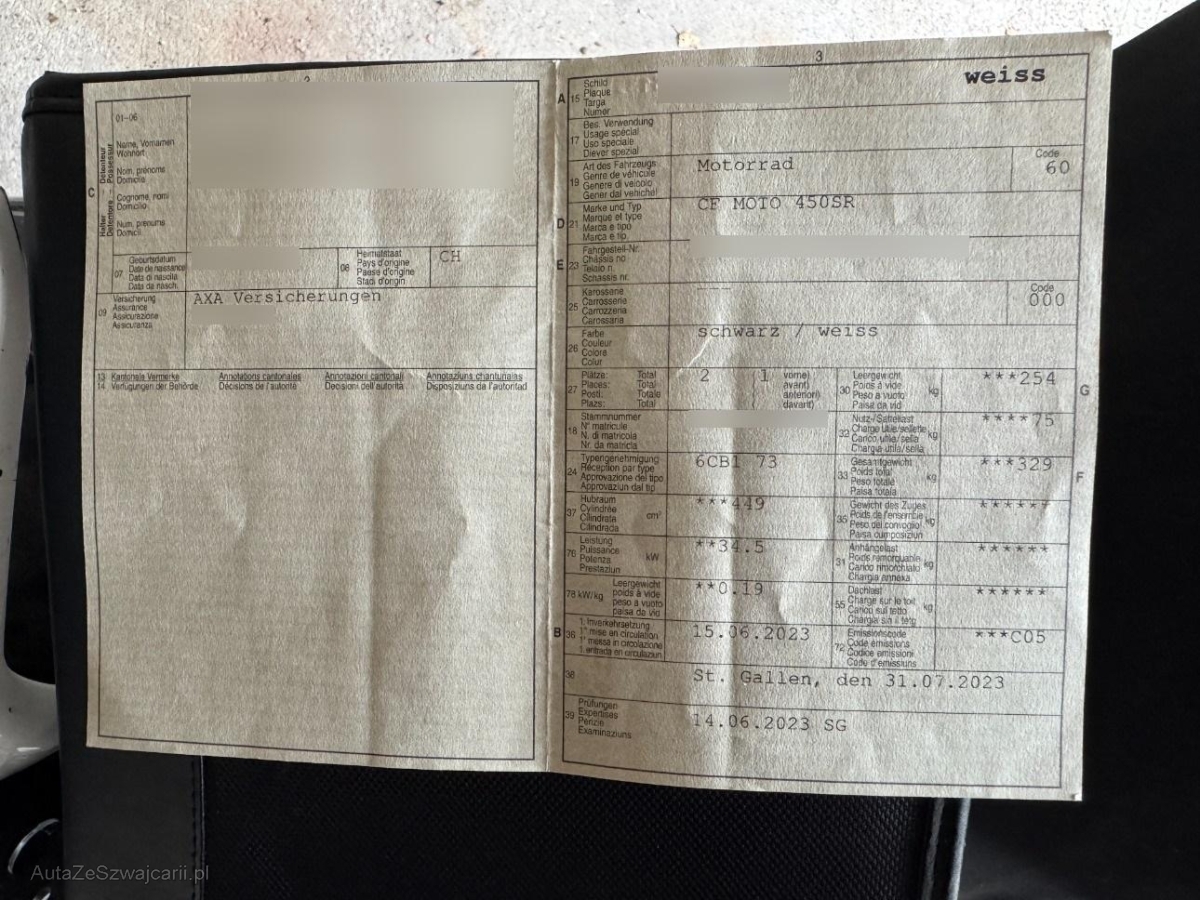 2
01-06
C
Halter Détenteur
Detentore Possessur
Name, Vornamen
Wohnort
Nom, prénoms
Domicile
Cognome, nomi
Domicilio
Num, prenums
Domicil
07
Geburtsdatum
Date de naissance
Data di nascita
Data da nasch.
08
Heimatstaat
Pays d'origine
Paese d'origine
Stadi d'origin
CH
09
Versicherung
Assurance
Assicurazione
Assicuranza
AXA Versicherungen
13 Kantonale Vermerke Annotations cantonales Annotazioni cantonali Annotaziuns chantunalas
14 Verfügungen der Behörde Décisions de l'autorité Decisioni dell'autorità Disposiziuns da l'autoritad
3
weiss
A 15
Schild
Plaque
Targa
Numer
17
Bes. Verwendung
Usage spécial
Uso speciale
Diever spezial
19
Art des Fahrzeugs
Genre de véhicule
Genere di veicolo
Gener dal vehichel
Motorrad
Code
60
D 21
Marke und Typ
Marque et type
Marca e tipo
Marca e tip
CF MOTO 450SR
E 23
Fahrgestell-Nr.
Châssis no
Telaio n.
Schassis nr.
25
Karosserie
Carrosserie
Carrozzeria
Carossaria
---
Code
000
26
Farbe
Couleur
Colore
Colur
schwarz / weiss
27
Plätze: Total
Places: Total
Posti: Totale
Plazs: Total
2 1
vorne)
avant)
anteriori)
davant)
30
Leergewicht
Poids à vide
Peso a vuoto
Paisa da vid
kg
***254
G
18
Stammnummer
N° matricule
N. di matricola
Nr. da matricla
32
Nutz-/Sattellast
Charge utile/sellette
Carico utile/sella
Chargia utila/sella
kg
****75
24
Typengenehmigung
Réception par type
Approvazione del tipo
Approvaziun dal tip
6CB1 73
33
Gesamtgewicht
Poids total
Peso totale
Paisa totala
kg
***329
F
37
Hubraum
Cylindrée
Cilindrata
Cilindrada
cm³
***449
35
Gewicht des Zuges
Poids de l'ensemble
Peso del convoglio
Paisa cumposiziun
kg
******
76
Leistung
Puissance
Potenza
Prestaziun
kW
**34.5
31
Anhängelast
Poids remorquable
Carico rimorchiato
Chargia annexa
kg
******
78 kW/kg
Leergewicht
poids à vide
peso a vuoto
paisa da vid
**0.19
55
Dachlast
Charge sur le toit
Carico sul tetto
Chargia sin il tetg
kg
******
B 36
1. Inverkehrsetzung
1re mise en circulation
1a messa in circolazione
1. entrada en circulaziun
15.06.2023
72
Emissionscode
Code émissions
Codice emissioni
Code d'emissiuns
***C05
38
St. Gallen, den 31.07.2023
39
Prüfungen
Expertises
Perizie
Examinaziuns
14.06.2023 SG
AutaZeSzwajcarii.pl